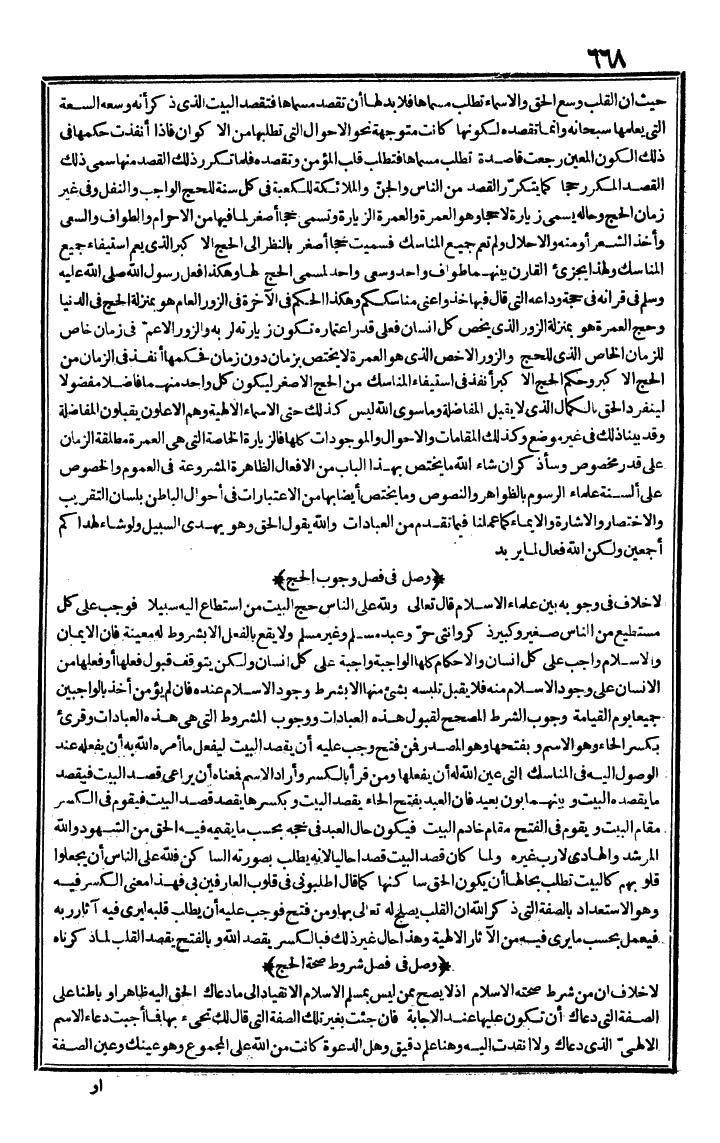 ٦٦٨
حيث ان القلب وسع الحق والاسماء تطلب مسماها فلا بد لها أن تقصد مسماها فتقصد البيت الذى ذكر أنه وسعه السعة
التى يعلمها سبحانه وانما تقصده لكونها كانت متوجهة نحو الاحوال التى تطلبها من الاكوان فاذا أنفذت حكمها فى
ذلك الكون المعين رجعت قاصدة تطلب مسماها فتطلب قلب المؤمن وتقصده فلما تكرر ذلك القصد منها سمى ذلك
القصد المكرر حجا كما يتكرّر القصد من الناس والجنّ والملائكة للكعبة فى كل سنة للحج الواجب والنفل وفى غير
زمان الحج وحاله يسمى زيارة لا حجا وهو العمرة والعمرة الزيارة وتسمى حجا أصغر لما فيها من الاحرام والطواف والسعى
وأخذ الشعر أو منه والاحلال ولم تعم جميع المناسك فسميت حجا أصغر بالنظر الى الحج الاكبر الذى يعم استيفاء جميع
المناسك ولهذا يجزئ القارن بينهما طواف واحد وسعى واحد لمسمى الحج لها وهكذا فعل رسول الله صلى الله عليه
وسلم فى قرانه فى حجة وداعه التى قال فيها خذوا عنى مناسككم وهكذا الحكم فى الآخرة فى الزور العام هو بمنزلة الحج فى الدنيا
وحج العمرة هو بمنزلة الزور الذى يخص كل انسان فعلى قدر اعتماره تكون زيارته لربه والزور الاعمّ فى زمان خاص
للزمان الخاص الذى للحج والزور الاخص الذى هو العمرة لا يختص بزمان دون زمان فحكمها أنفذ فى الزمان من
الحج الاكبر وحكم الحج الاكبر أنفذ فى استيفاء المناسك من الحج الاصغر ليكون كل واحد منهما فاضلا مفضولا
لينفرد الحق بالكمال الذى لا يقبل المفاضلة وما سوى الله ليس كذلك حتى الاسماء الالهية وهم الاعلون يقبلون المفاضلة
وقد بينا ذلك فى غير موضع وكذلك المقامات والاحوال والموجودات كلها فالزيارة الخاصة التى هى العمرة مطلقة الزمان
على قدر مخصوص وسأذكر ان شاء الله ما يختص بهذا الباب من الافعال الظاهرة المشروعة فى العموم والخصوص
على ألسنة علماء الرسوم بالظواهر والنصوص وما يختص أيضا بها من الاعتبارات فى أحوال الباطن بلسان التقريب
والاختصار والاشارة والايماء كما عملنا فيما تقدم من العبادات والله يقول الحق وهو يهدى السبيل ولو شاء لهداكم
أجمعين ولكن الله فعال لما يريد
﴿وصل فى فصل وجوب الحج﴾
لا خلاف فى وجوبه بين علماء الاسلام قال تعالى ولله على الناس حج البيت من استطاع اليه سبيلا فوجب على كل
مستطيع من الناس صغير وكبير ذكر وانثى حرّ وعبد مسلم وغير مسلم ولا يقع بالفعل الا بشروط له معينة فان الايمان
والاسلام واجب على كل انسان والاحكام كلها الواجبة واجبة على كل انسان ولكن يتوقف قبول فعلها أو فعلها من
الانسان على وجود الاسلام منه فلا يقبل تلبسه بشئ منها الا بشرط وجود الاسلام عنده فان لم يؤمن أخذ بالواجبين
جميعا يوم القيامة وجوب الشرط المصحح لقبول هذه العبادات ووجوب المشروط التى هى هذه العبادات وقرئ
بكسر الحاء وهو الاسم وبفتحها وهو المصدر فمن فتح وجب عليه أن يقصد البيت ليفعل ما أمره الله به أن يفعله عند
الوصول اليه فى المناسك التى عين الله له أن يفعلها ومن قرأ بالكسر وأراد الاسم فمعناه أن يراعى قصد البيت فيقصد
ما يقصده البيت وبينهما بون بعيد فان العبد بفتح الحاء يقصد البيت وبكسرها يقصد قصد البيت فيقوم فى الكسر
مقام البيت ويقوم فى الفتح مقام خادم البيت فيكون حال العبد فى حجه بحسب ما يقيمه فيه الحق من الشهود والله
المرشد والهادى لا رب غيره ولما كان قصد البيت قصدا حاليا لانه يطلب بصورته الساكن فلله على الناس أن يجعلوا
قلوبهم كالبيت تطلب بحالها أن يكون الحق ساكنها كما قال اطلبونى فى قلوب العارفين بى فهذا معنى الكسر فيه
وهو الاستعداد بالصفة التى ذكر الله ان القلب يصلح له تعالى بها ومن فتح فوجب عليه أن يطلب قلبه ليرى فيه آثار ربه
فيعمل بحسب ما يرى فيه من الآثار الالهية وهذا حال غير ذلك فبالكسر يقصد الله وبالفتح يقصد القلب لما ذكرناه
﴿وصل فى فصل شروط صحة الحج﴾
لا خلاف ان من شرط صحته الاسلام اذ لا يصح ممن ليس بمسلم الاسلام الانقياد الى ما دعاك الحق اليه ظاهرا وباطنا على
الصفة التى دعاك أن تكون عليها عند الاجابة فان جئت بغير تلك الصفة التى قال لك تجىء بها فما أجبت دعاء الاسم
الالهىّ الذى دعاك ولا انقدت اليه وهنا علم دقيق وهل الدعوة كانت من الله على المجموع وهو عينك وعين الصفة
او